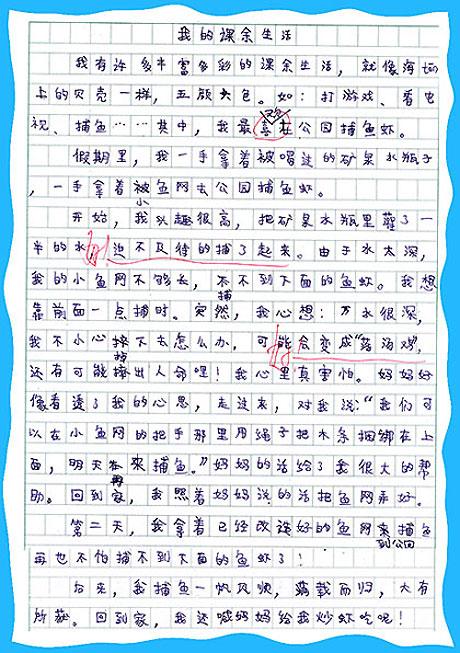 我的课余生活
我有许多丰富多彩的课余生活，就像海边
上的贝壳一样，五颜六色。如：打游戏、看电
视、捕鱼……其中，我最喜在公园捕鱼虾。
假期里，我一手拿着被喝过的矿泉水瓶子
，一手拿着小鱼网去公园捕鱼虾。
开始，我兴趣很高，把矿泉水瓶里灌了一
半的水，迫不及待的捕了起来。由于水太深，
我的小鱼网不够长，捕不到下面的鱼虾。我想
靠前面一点捕时。突然，我心想：万水很深，
我不小心掉下去怎么办，可能会变成“落汤鸡”，
还有可能摔出人命哩！我心里真害怕。妈妈好
像看透了我的心思，走过来，对我说：“我们可
以在小鱼网的把手那里用绳子把木条捆绑在上
面，明天再来捕鱼。”妈妈的话给了我很大的帮
助。回到家，我照着妈妈说的话把鱼网弄好。
第二天，我拿着已经改造好的鱼网来到公园捕鱼
再也不怕捕不到下面的鱼虾了！
后来，我捕鱼一帆风顺，满载而归，大有
所获。回到家，我还喊妈妈给我炒虾吃呢！